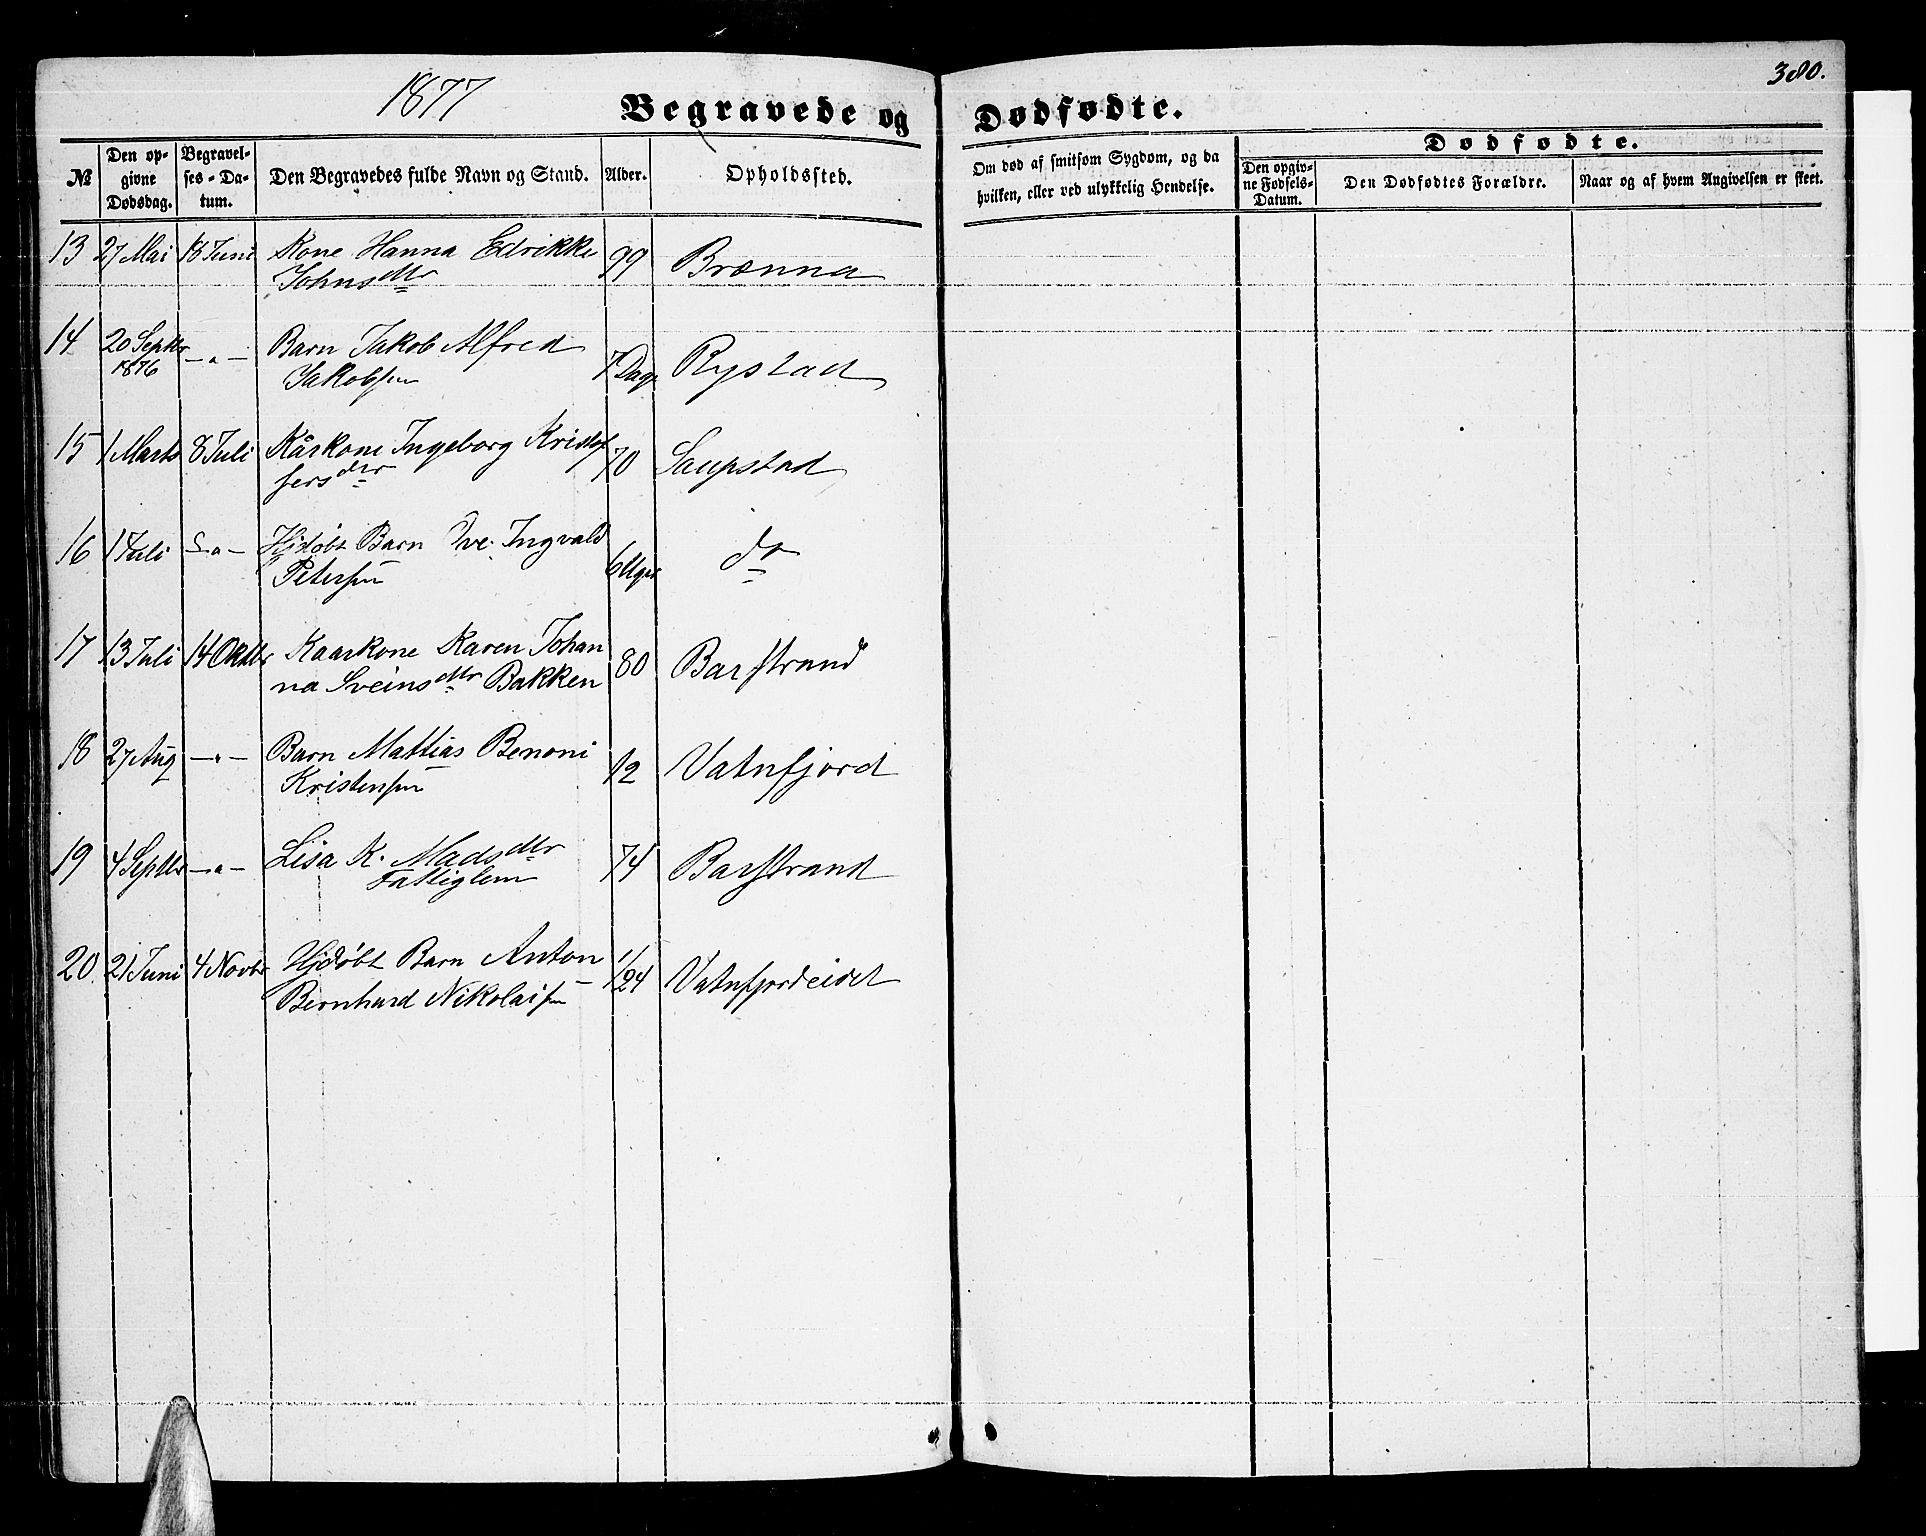 1877
Begravede og Dødfødte.
380.
№ Den opgivne Dødsdag. Begravelses-Datum. Den Begravedes fulde Navn og Stand. Alder. Opholdssted. Om død af smitsom Sygdom, og da hvilken, eller ved ulykkelig Hendelse.
Dødfødte.
Den opgivne Fødsels-Datum. Den Dødfødtes Forældre. Naar og af hvem Angivelsen er skeet.
13 27 Mai 18 Juni Kone Hanna Edrikke 99 Brænna
Johnsdtr
14 20 Septbr 1876 — " — Barn Jakob Alfred 7 Dage Rystad
Jakobsen
15 1 Marts 8 Juli Kårkone Ingeborg Kristof 70 Saupstad
fersdtr
16 1 Juli — " — Hjdøbt Barn Ingvald 6 Uger do
Petersen
17 13 Juli 14 Oktbr Kaarkone Karen Johan 80 Barstrand
na Sveinsdtr Bakken
18 27 Aug — " — Barn Mattias Benoni 12 Vatnfjord
Kristensen
19 4 Septbr — " — Lisa K. Madsdtr 74 Barstrand
Fattiglem
20. 21 Juni 4 Novbr Hjdøbt Barn Anton 1/24 Vatnfjordeidet
Bernhard Nikolaisen